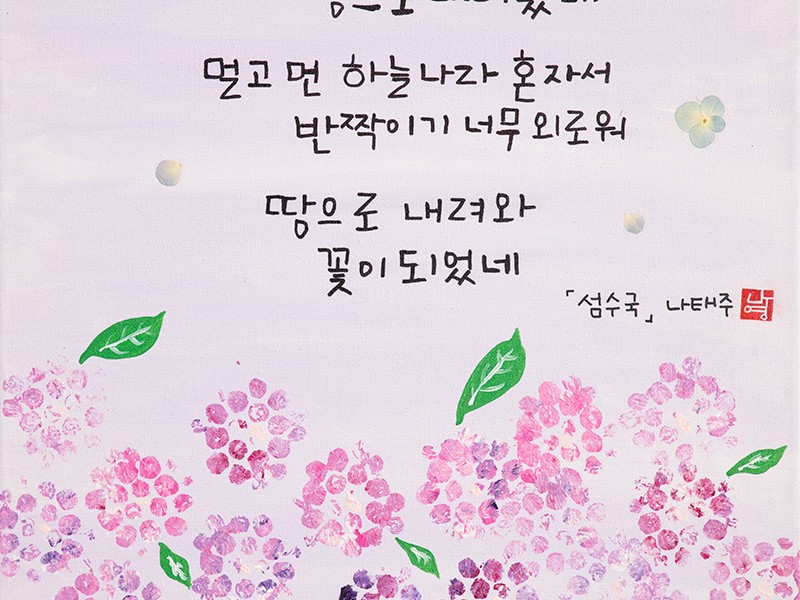 멀고 먼 하늘나라 혼자서
반짝이기 너무 외로워
땅으로 내려와
꽃이 되었네
「섬수국」 나태주